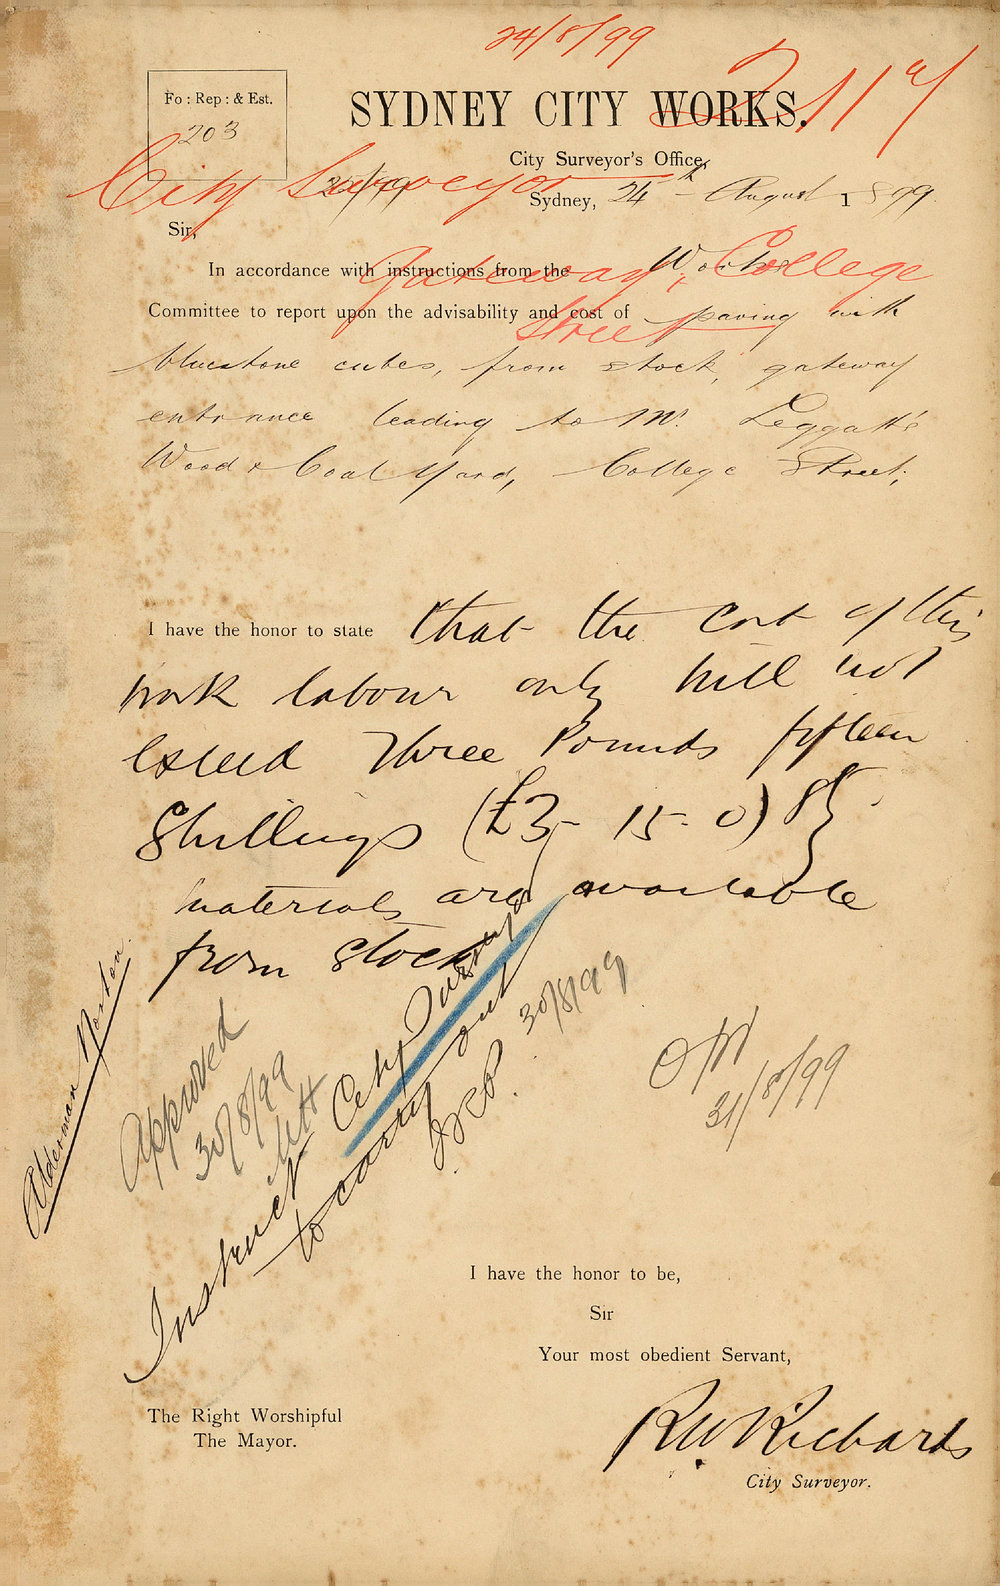 24/8/99
Fo : Rep : & Est.
203
SYDNEY CITY WORKS.
City Surveyor's Office,
City Surveyor
Sydney, 24th August 1899
Sir,
In accordance with instructions from the Works
Gateway, College
Street
Committee to report upon the advisability and cost of paving with
bluestone cubes, from stock, gateway
entrance leading to Mr. Leggatt's
Wood & Coal Yard, College Street;
I have the honor to state that the cost of this
work labour only will not
exceed Three Pounds fifteen
Shillings (£3-15-0)
materials are available
from stock
Alderman
Approved
30/8/99
Instruct City Surveyor
to carry out
30/8/99
31/8/99
I have the honor to be,
Sir
Your most obedient Servant,
The Right Worshipful
The Mayor.
RW Richards
City Surveyor.